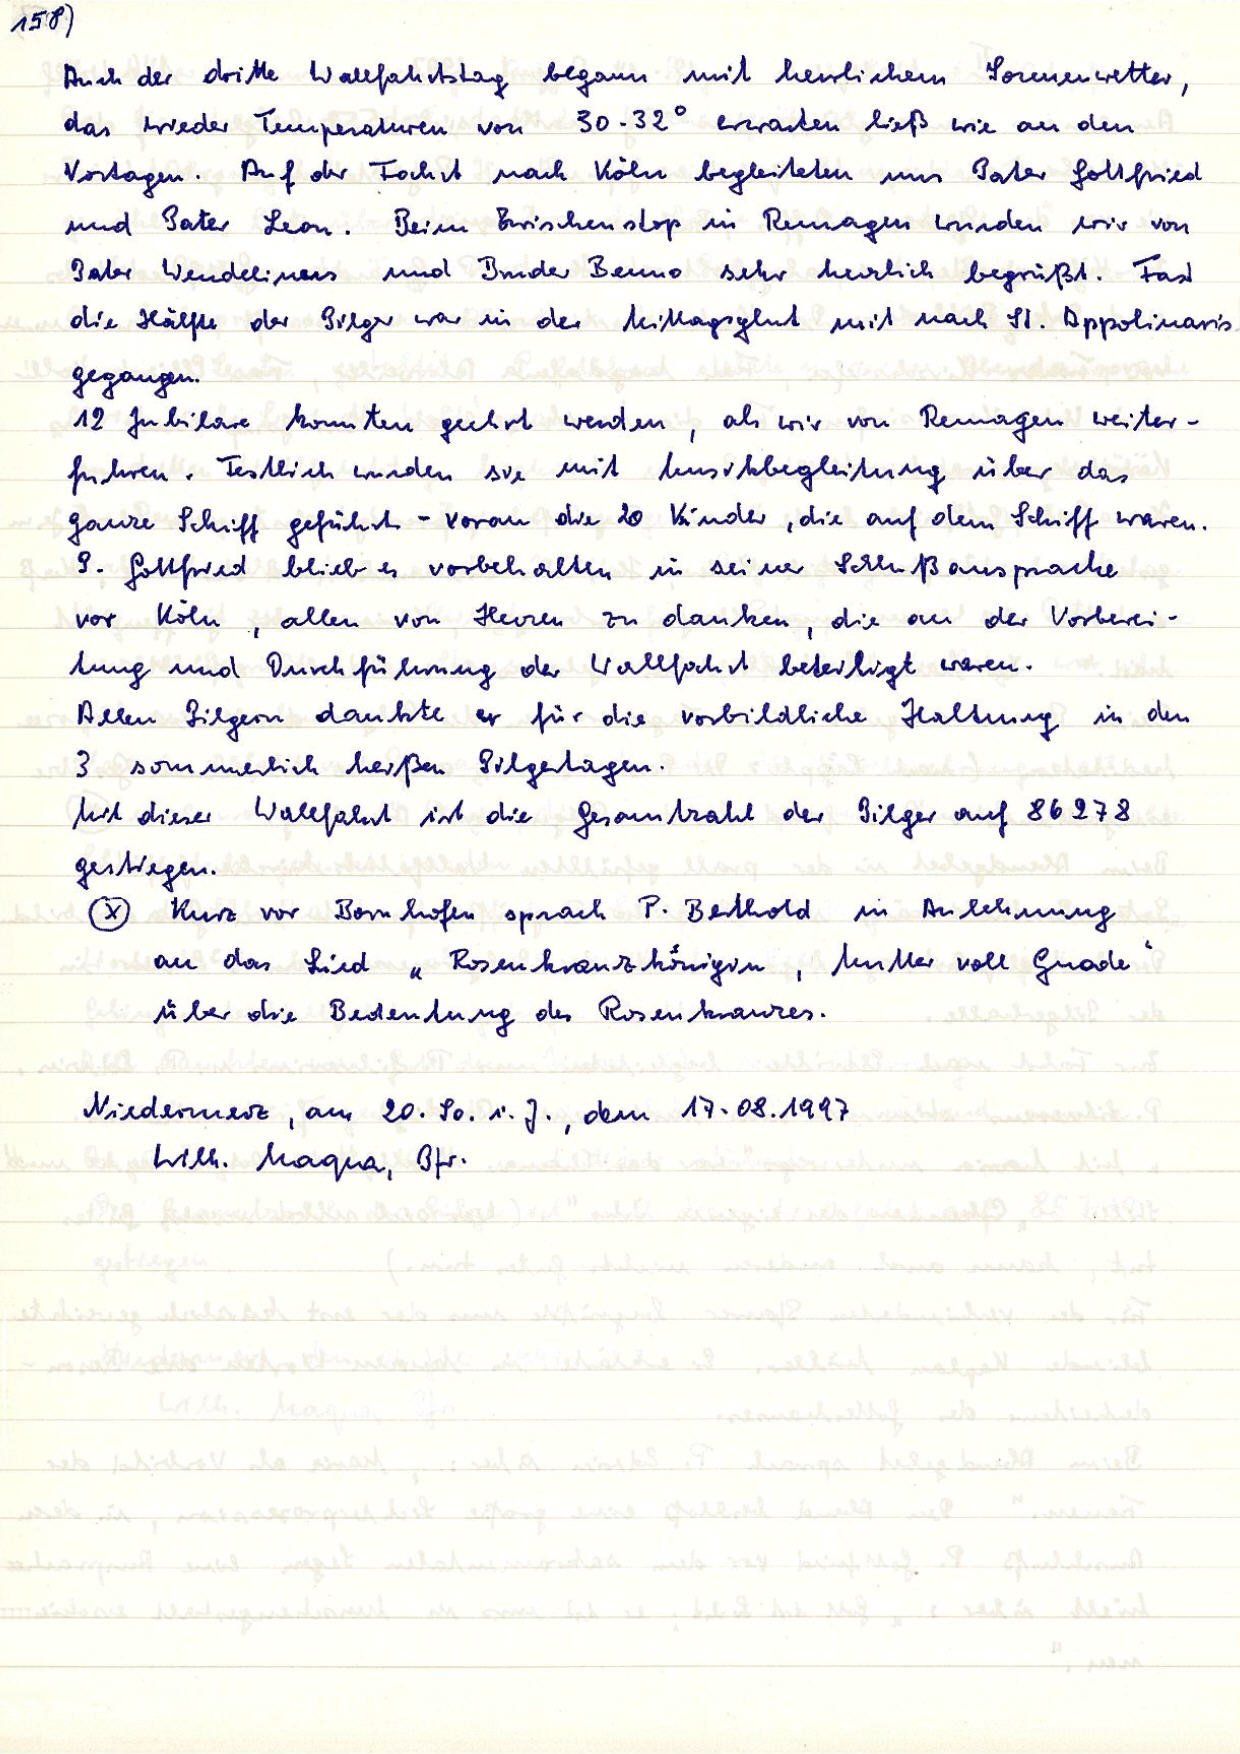 158)
Auch der dritte Wallfahrtstag begann mit herrlichem Sonnenwetter,
das wieder Temperaturen von 30-32° erwarten ließ wie an den
Vortagen. Auf der Fahrt nach Köln begleiteten uns Pater Gottfried
und Pater Leon. Beim Zwischenstop in Remagen wurden wir von
Pater Wendelinus und Bruder Benno sehr herzlich begrüßt. Fast
die Hälfte der Pilger war in der Mittagsglut mit nach St. Appolinaris
gegangen.
12 Jubilare konnten geehrt werden, als wir von Remagen weiter-
fuhren. Festlich wurden sie mit Musikbegleitung über das
ganze Schiff geführt - voran die 20 Kinder, die auf dem Schiff waren.
P. Gottfried blieb es vorbehalten in seiner Schlußansprache
vor Köln, allen von Herzen zu danken, die an der Vorberei-
tung und Durchführung der Wallfahrt beteiligt waren.
Allen Pilgern dankte er für die vorbildliche Haltung in den
3 sommerlich heißen Pilgertagen.
Mit dieser Wallfahrt ist die Gesamtzahl der Pilger auf 86278
gestiegen.
(X) Kurz vor Bornhofen sprach P. Berthold in Anlehnung
an das Lied „Rosenkranzkönigin, Mutter voll Gnade“
über die Bedeutung des Rosenkranzes.
Niedermerz, am 20. So. i. J., dem 17.08.1997
Wilh. Maqua, Bfr.